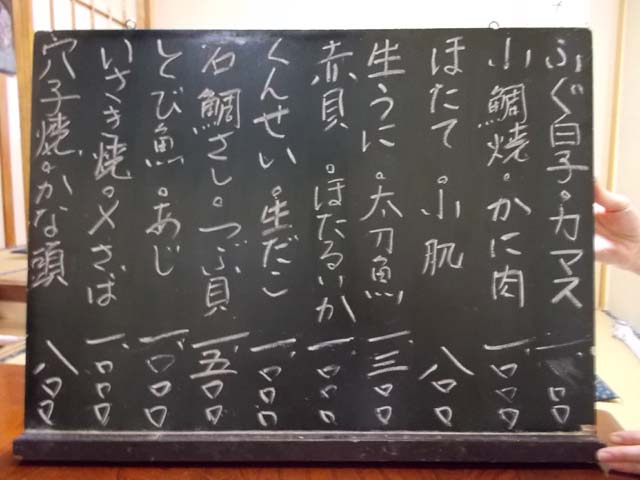 ふぐ白子。カマス
小鯛焼。かに肉 一、〇〇〇
ほたて。小肌 八〇〇
生うに。太刀魚 一、三〇〇
赤貝。ほたるいか 一、〇〇〇
くんせい。生だこ 一、〇〇〇
石鯛さし。つぶ貝 一、五〇〇
とび魚。あじ 一、〇〇〇
いさき焼。〆さば 一、〇〇〇
穴子焼。かな頭 八〇〇